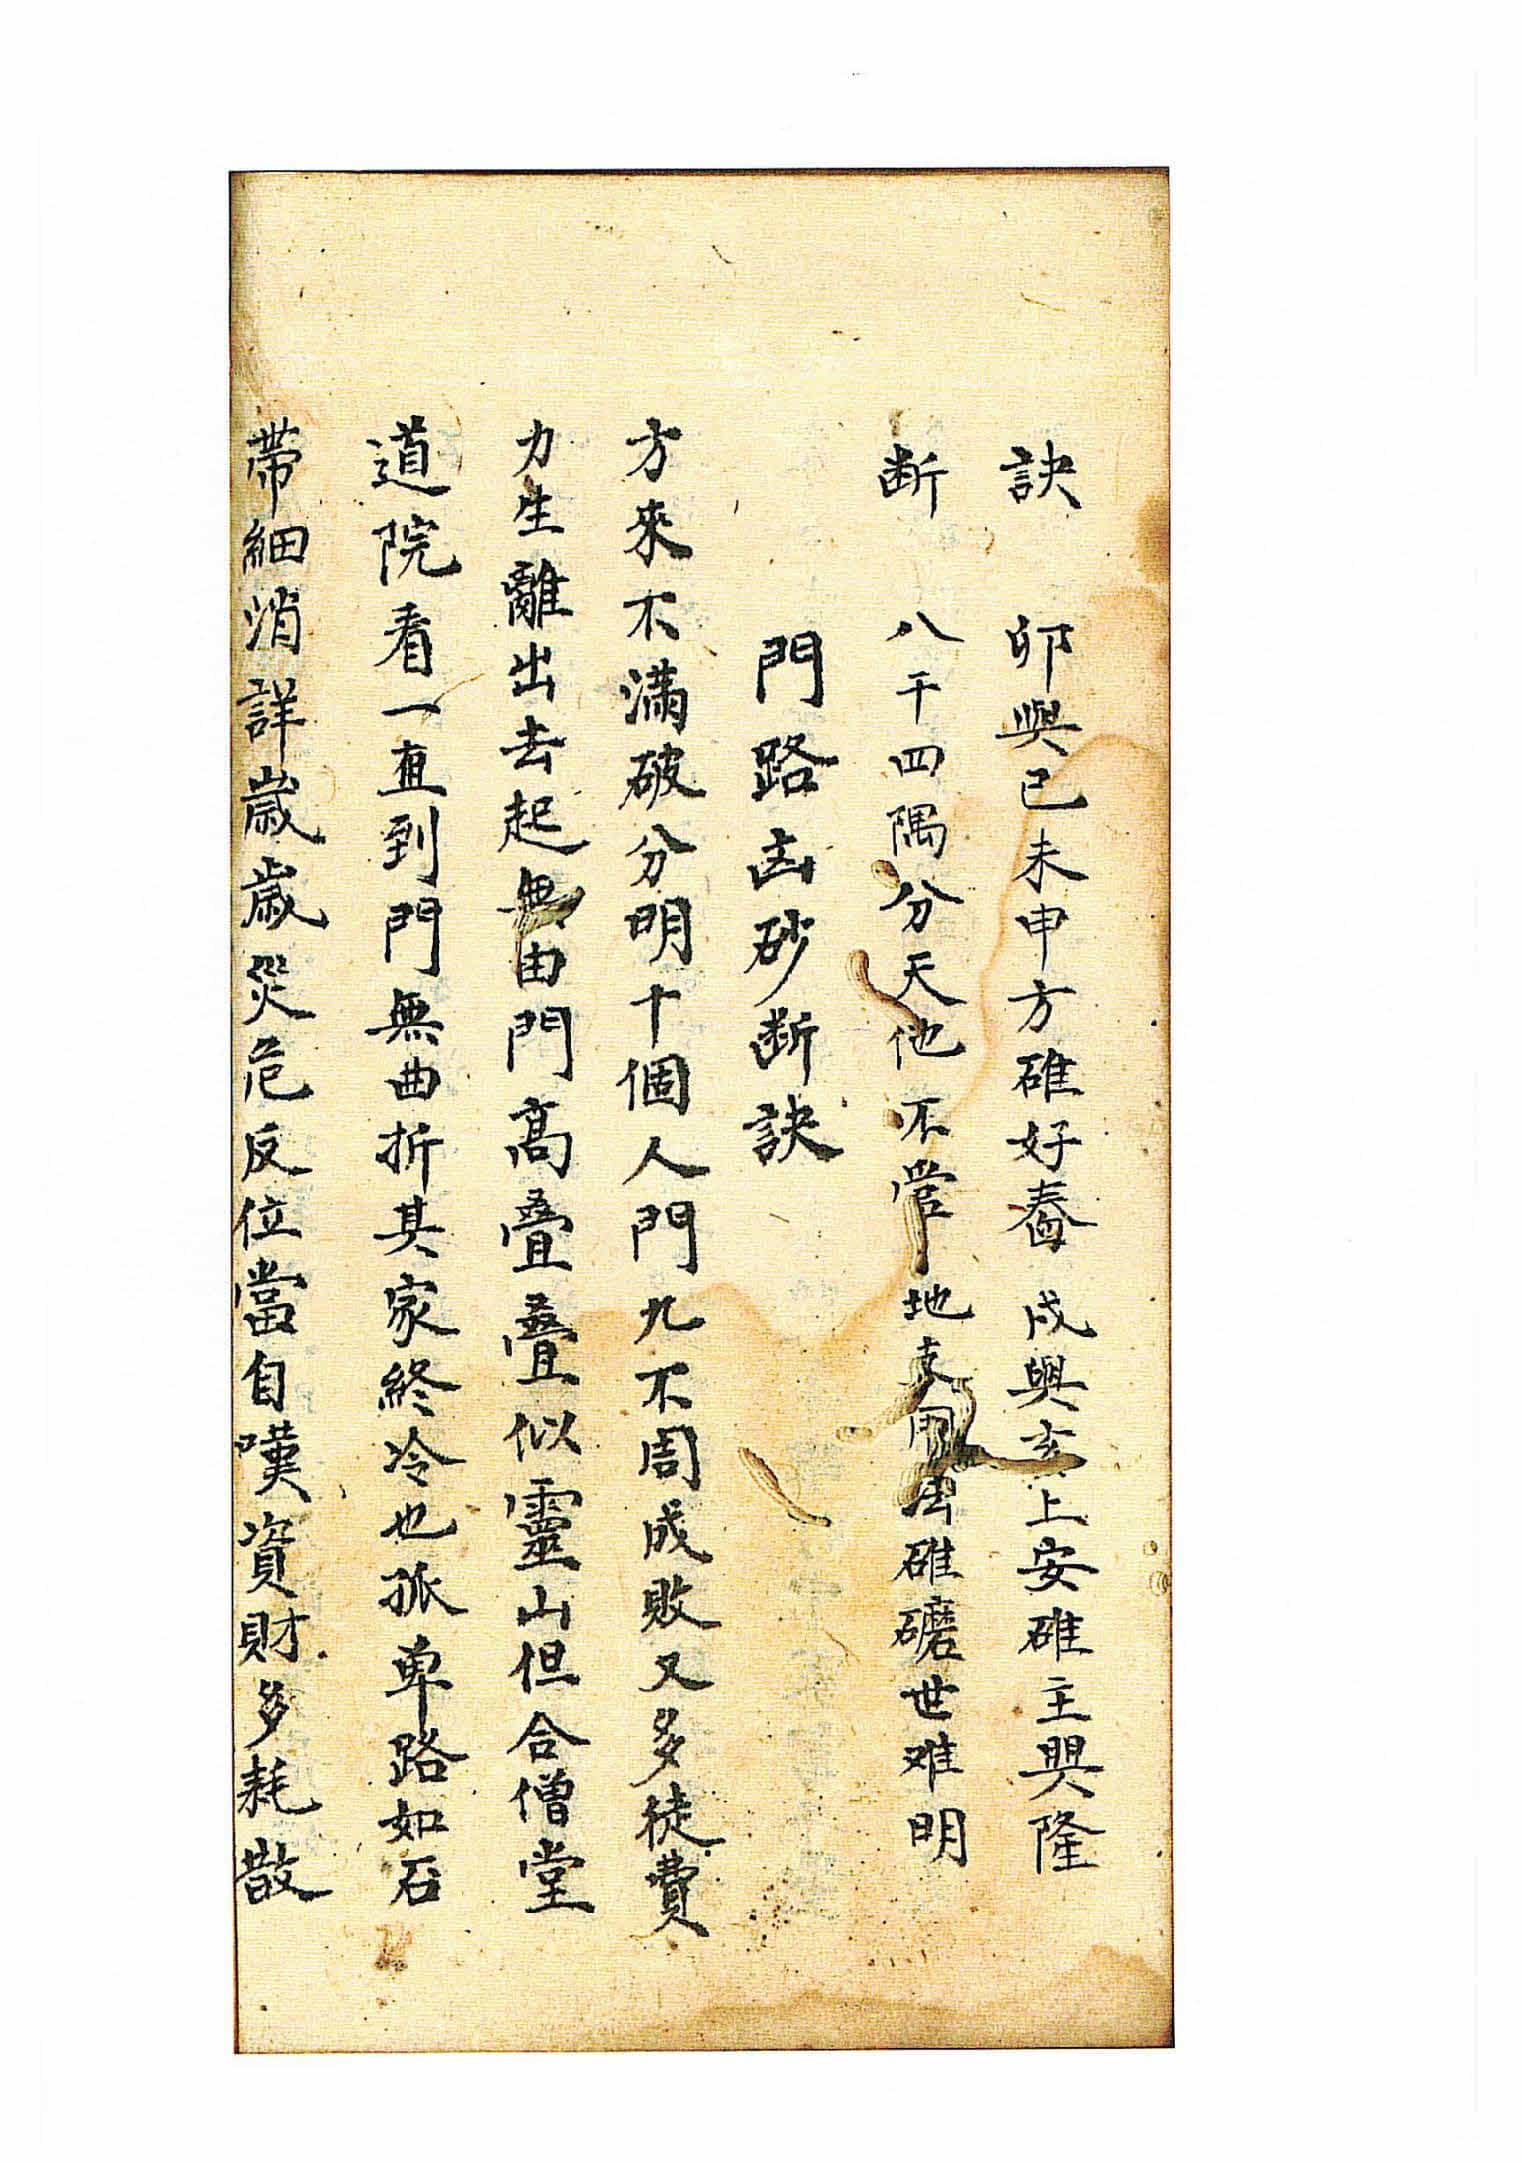 訣 卯與己未申方碓好舂戌與亥上安碓主興隆
断 八干四隅分天他不管地支用碓磨世难明
門路凶砂断訣
方來不满破分明十個人門九不周成敗又多徒費
力生離出去起無由門高疊疊似靈山但合僧堂
道院看一直到門無曲折其家終冷也孤單路如石
带細消詳歳歳災危反位當自嘆資財多耗散